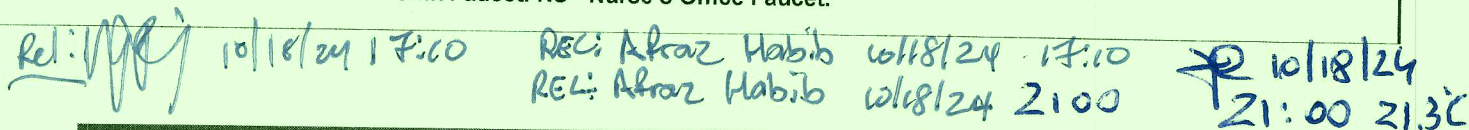 Nurse's Office Faucet.
Rel: 10/18/24 17:10 REC: Afraz Habib 10/18/24 17:10 10/18/24
REL: Afraz Habib 10/18/24 21:00 21:00 21.3°C